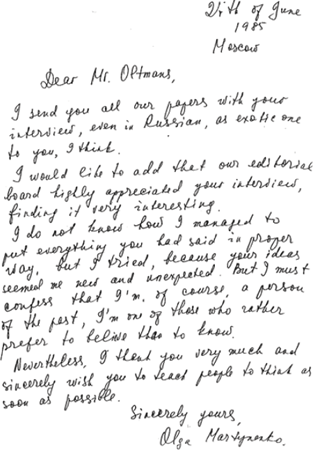 24th of June
1985
Moscow
Dear Mr. Oltmans,
I send you all our papers with your
interview, even in Russian, as exotic one
to you, I think.
I would like to add that our editorial
board highly appreciated your interview,
finding it very interesting.
I do not know how I managed to
put everything you had said in proper
way, but I tried, because your ideas
seemed me new and unexpected. But I must
confess that I'm, of course, a person
of the past, I'm one of those who rather
prefer to belive than to know.
Nevertheless, I thank you very much and
sincerely wish you to teach people to think as
soon as possible.
Sincerely yours,
Olga Martynenko.